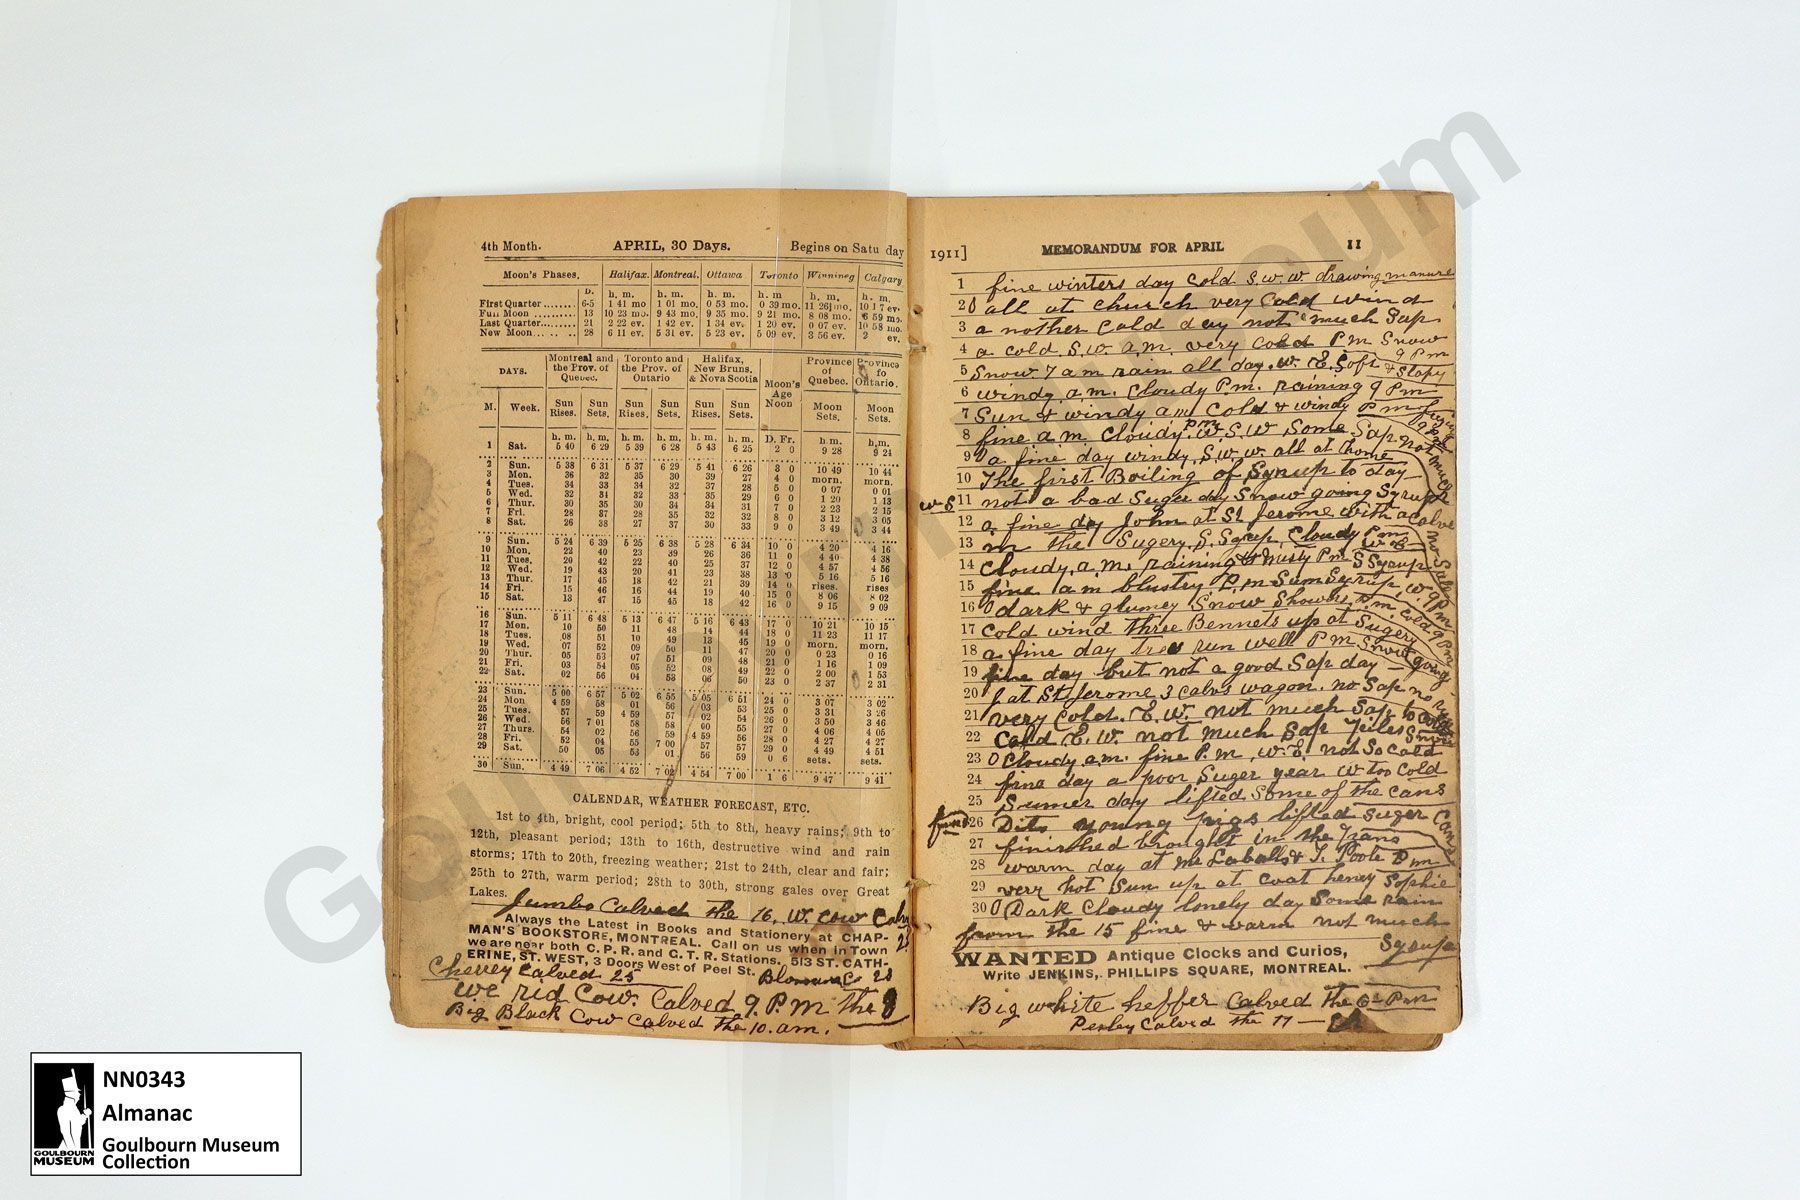 4th Month. APRIL, 30 Days. Begins on Satu day
Moon's Phases. Halifax. Montreal. Ottawa Toronto Winnipeg Calgary
D. h. m. h. m. h. m. h. m h. m. h. m.
First Quarter ........ 6-5 1 41 mo 1 01 mo. 0 53 mo. 0 39 mo. 11 26 mo. 10 17 ev.
Full Moon .......... 13 10 23 mo. 9 43 mo. 9 35 mo. 9 21 mo. 8 08 mo. 6 59 mo.
Last Quarter........ 21 2 22 ev. 1 42 ev. 1 34 ev. 1 20 ev. 0 07 ev. 10 58 mo.
New Moon... .. .. 28 6 11 ev. 5 31 ev. 5 23 ev. 5 09 ev. 3 56 ev. 2 ev.
DAYS. Montreal and the Prov. of Quebec. Toronto and the Prov. of Ontario Halifax, New Bruns. & Nova Scotia Moon's Age Noon Province of Quebec. Province fo Ontario.
M. Week. Sun Rises. Sun Sets. Sun Rises. Sun Sets. Sun Rises. Sun Sets. Moon Sets. Moon Sets.
h. m. h. m. h. m. h. m. h. m. h. m. D. Fr. h. m. h. m.
1 Sat. 5 40 6 29 5 39 6 28 5 43 6 25 2 0 9 28 9 24
2 Sun. 5 38 6 31 5 37 6 29 5 41 6 26 3 0 10 49 10 44
3 Mon. 36 32 35 30 39 27 4 0 morn. morn.
4 Tues. 34 33 34 32 37 28 5 0 0 07 0 01
5 Wed. 32 34 32 33 35 29 6 0 1 20 1 13
6 Thur. 30 35 30 34 34 31 7 0 2 23 2 15
7 Fri. 28 37 28 35 32 32 8 0 3 12 3 05
8 Sat. 26 38 27 37 30 33 9 0 3 49 3 44
9 Sun. 5 24 6 39 5 25 6 38 5 28 6 34 10 0 4 20 4 16
10 Mon. 22 40 23 39 26 36 11 0 4 40 4 38
11 Tues. 20 42 22 40 25 37 12 0 4 57 4 56
12 Wed. 19 43 20 41 23 38 13 0 5 16 5 16
13 Thur. 17 45 18 42 21 39 14 0 rises. rises
14 Fri. 15 46 16 44 19 40 15 0 8 06 8 02
15 Sat. 13 47 15 45 18 42 16 0 9 15 9 09
16 Sun. 5 11 6 48 5 13 6 47 5 16 6 43 17 0 10 21 10 15
17 Mon. 10 50 11 48 14 44 18 0 11 23 11 17
18 Tues. 08 51 10 49 13 45 19 0 morn. morn.
19 Wed. 07 52 09 50 11 47 20 0 0 23 0 16
20 Thur. 05 53 07 51 09 48 21 0 1 16 1 09
21 Fri. 03 54 05 52 08 49 22 0 2 00 1 53
22 Sat. 02 56 04 53 06 50 23 0 2 37 2 31
23 Sun. 5 00 6 57 5 02 6 55 5 05 6 51 24 0 3 07 3 02
24 Mon 4 59 58 01 56 03 53 25 0 3 31 3 26
25 Tues. 57 59 4 59 57 02 54 26 0 3 50 3 46
26 Wed. 56 7 01 58 58 00 55 27 0 4 06 4 05
27 Thurs. 54 02 56 59 4 59 56 28 0 4 27 4 27
28 Fri. 52 04 55 7 00 57 57 29 0 4 49 4 51
29 Sat. 50 05 53 01 56 59 0 6 sets. sets.
30 Sun. 4 49 7 06 4 52 7 02 4 54 7 00 1 6 9 47 9 41
CALENDAR, WEATHER FORECAST, ETC.
1st to 4th, bright, cool period; 5th to 8th, heavy rains; 9th to
12th, pleasant period; 13th to 16th, destructive wind and rain
storms; 17th to 20th, freezing weather; 21st to 24th, clear and fair;
25th to 27th, warm period; 28th to 30th, strong gales over Great
Lakes.
Jumbo Calved the 16. W. Cow Calv
Always the Latest in Books and Stationery at CHAP-
MAN'S BOOKSTORE, MONTREAL. Call on us when in Town
we are near both C. P. R. and G. T. R. Stations. 513 ST. CATH-
ERINE, ST. WEST, 3 Doors West of Peel St.
Cherrey Calved 25
we rid Cow. Calved 9. P. M the 8
Big Black Cow Calved the 10. am.
1911] MEMORANDUM FOR APRIL 11
1 fine winters day Cold S. w. w. drawing manure
2 0 all at church very Cold wind
3 a nother Cold day not much Sap
4 a cold. S. w. a.m. very Cold P m Snow 9 P m
5 Snow 7 a m rain all day. w. E. Soft & Slopy
6 windy a.m. Cloudy P.m. raining 9 Pm
7 Sun & windy am Cold & windy P m
8 fine a.m. Cloudy pm W. S. W Some Sap not much
9 0 a fine day windy S. w. w. all at home
10 The first Boiling of Syrup to day
w E 11 not a bad Suger day Snow going Syrup
12 a fine day John at St Jerome with a Calve no Sale
13 in the Sugery S. Syrup Cloudy Pm
14 Cloudy a.m. raining & misty P m S Syrup
15 fine a m blustry P. m Sum Syrup, w 9 P m
16 0 dark & glumey Snow Showers P. m. Cold 9 Pm
17 Cold wind three Bennets up at Sugery
18 a fine day tree run well P m Snow going
19 fine day but not a good Sap day
20 J at St Jerome 3 Calvs wagon. no Sap no
21 very Cold. E. W. not much Sap to Cold
22 Cold E. W. not much Sap
23 0 Cloudy a.m. fine P. m. W. E. not So Cold
24 fine day a poor Suger year w too Cold
25 Sumer day lifted Some of the cans
26 Dito young pigs lifted Suger Cans
27 finished brought in the Pans
28 warm day at Mc & J. Poote P m
29 very hot Sun up at Coat heney Sophie
30 0 Dark Cloudy lonely day Some rain
from the 15 fine & warm not much
Syrup
WANTED Antique Clocks and Curios,
Write JENKINS, PHILLIPS SQUARE, MONTREAL.
Big white heffer Calved the 6 P m
Perley Calved the 17
NN0343
Almanac
Goulbourn Museum
Collection
GOULBOURN
MUSEUM
Goulbourn Museum